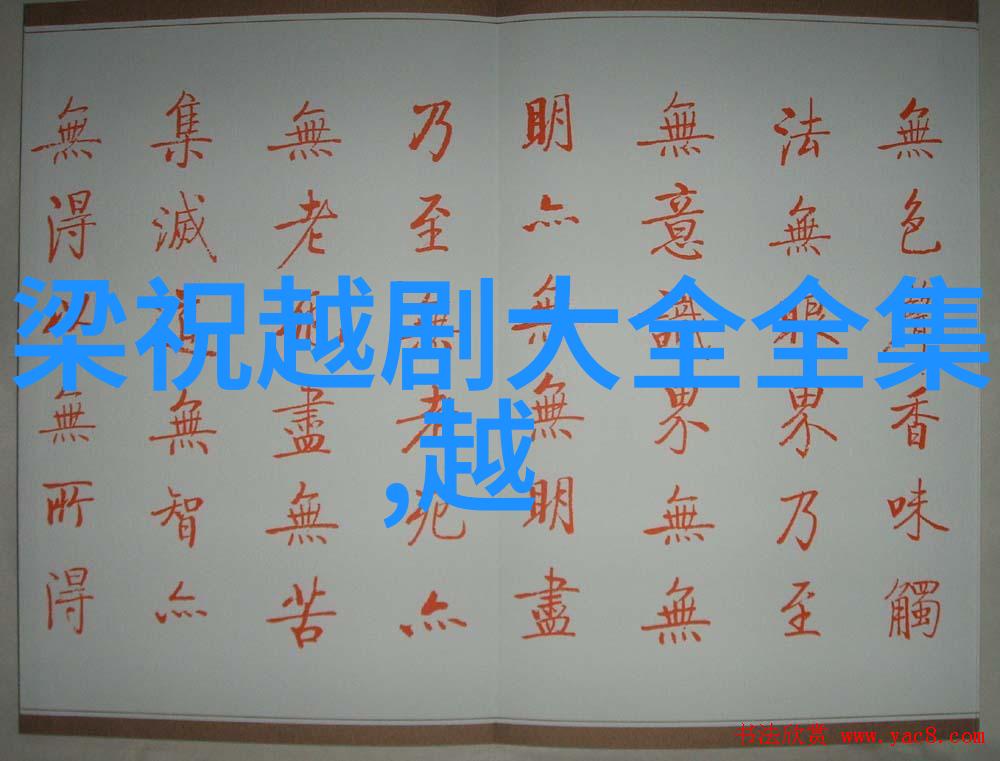 無色香味觸
法無眼界乃至
無意識界無無
明亦無無明盡
乃至無老死亦
無老盡無苦
集滅道無智亦
無得以無所得
梁祝越剧大全全集
,越
书法欣赏 www.yac8.com